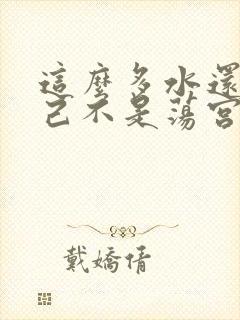 這麼多水還
己不是蕩宮
戴嬌倩